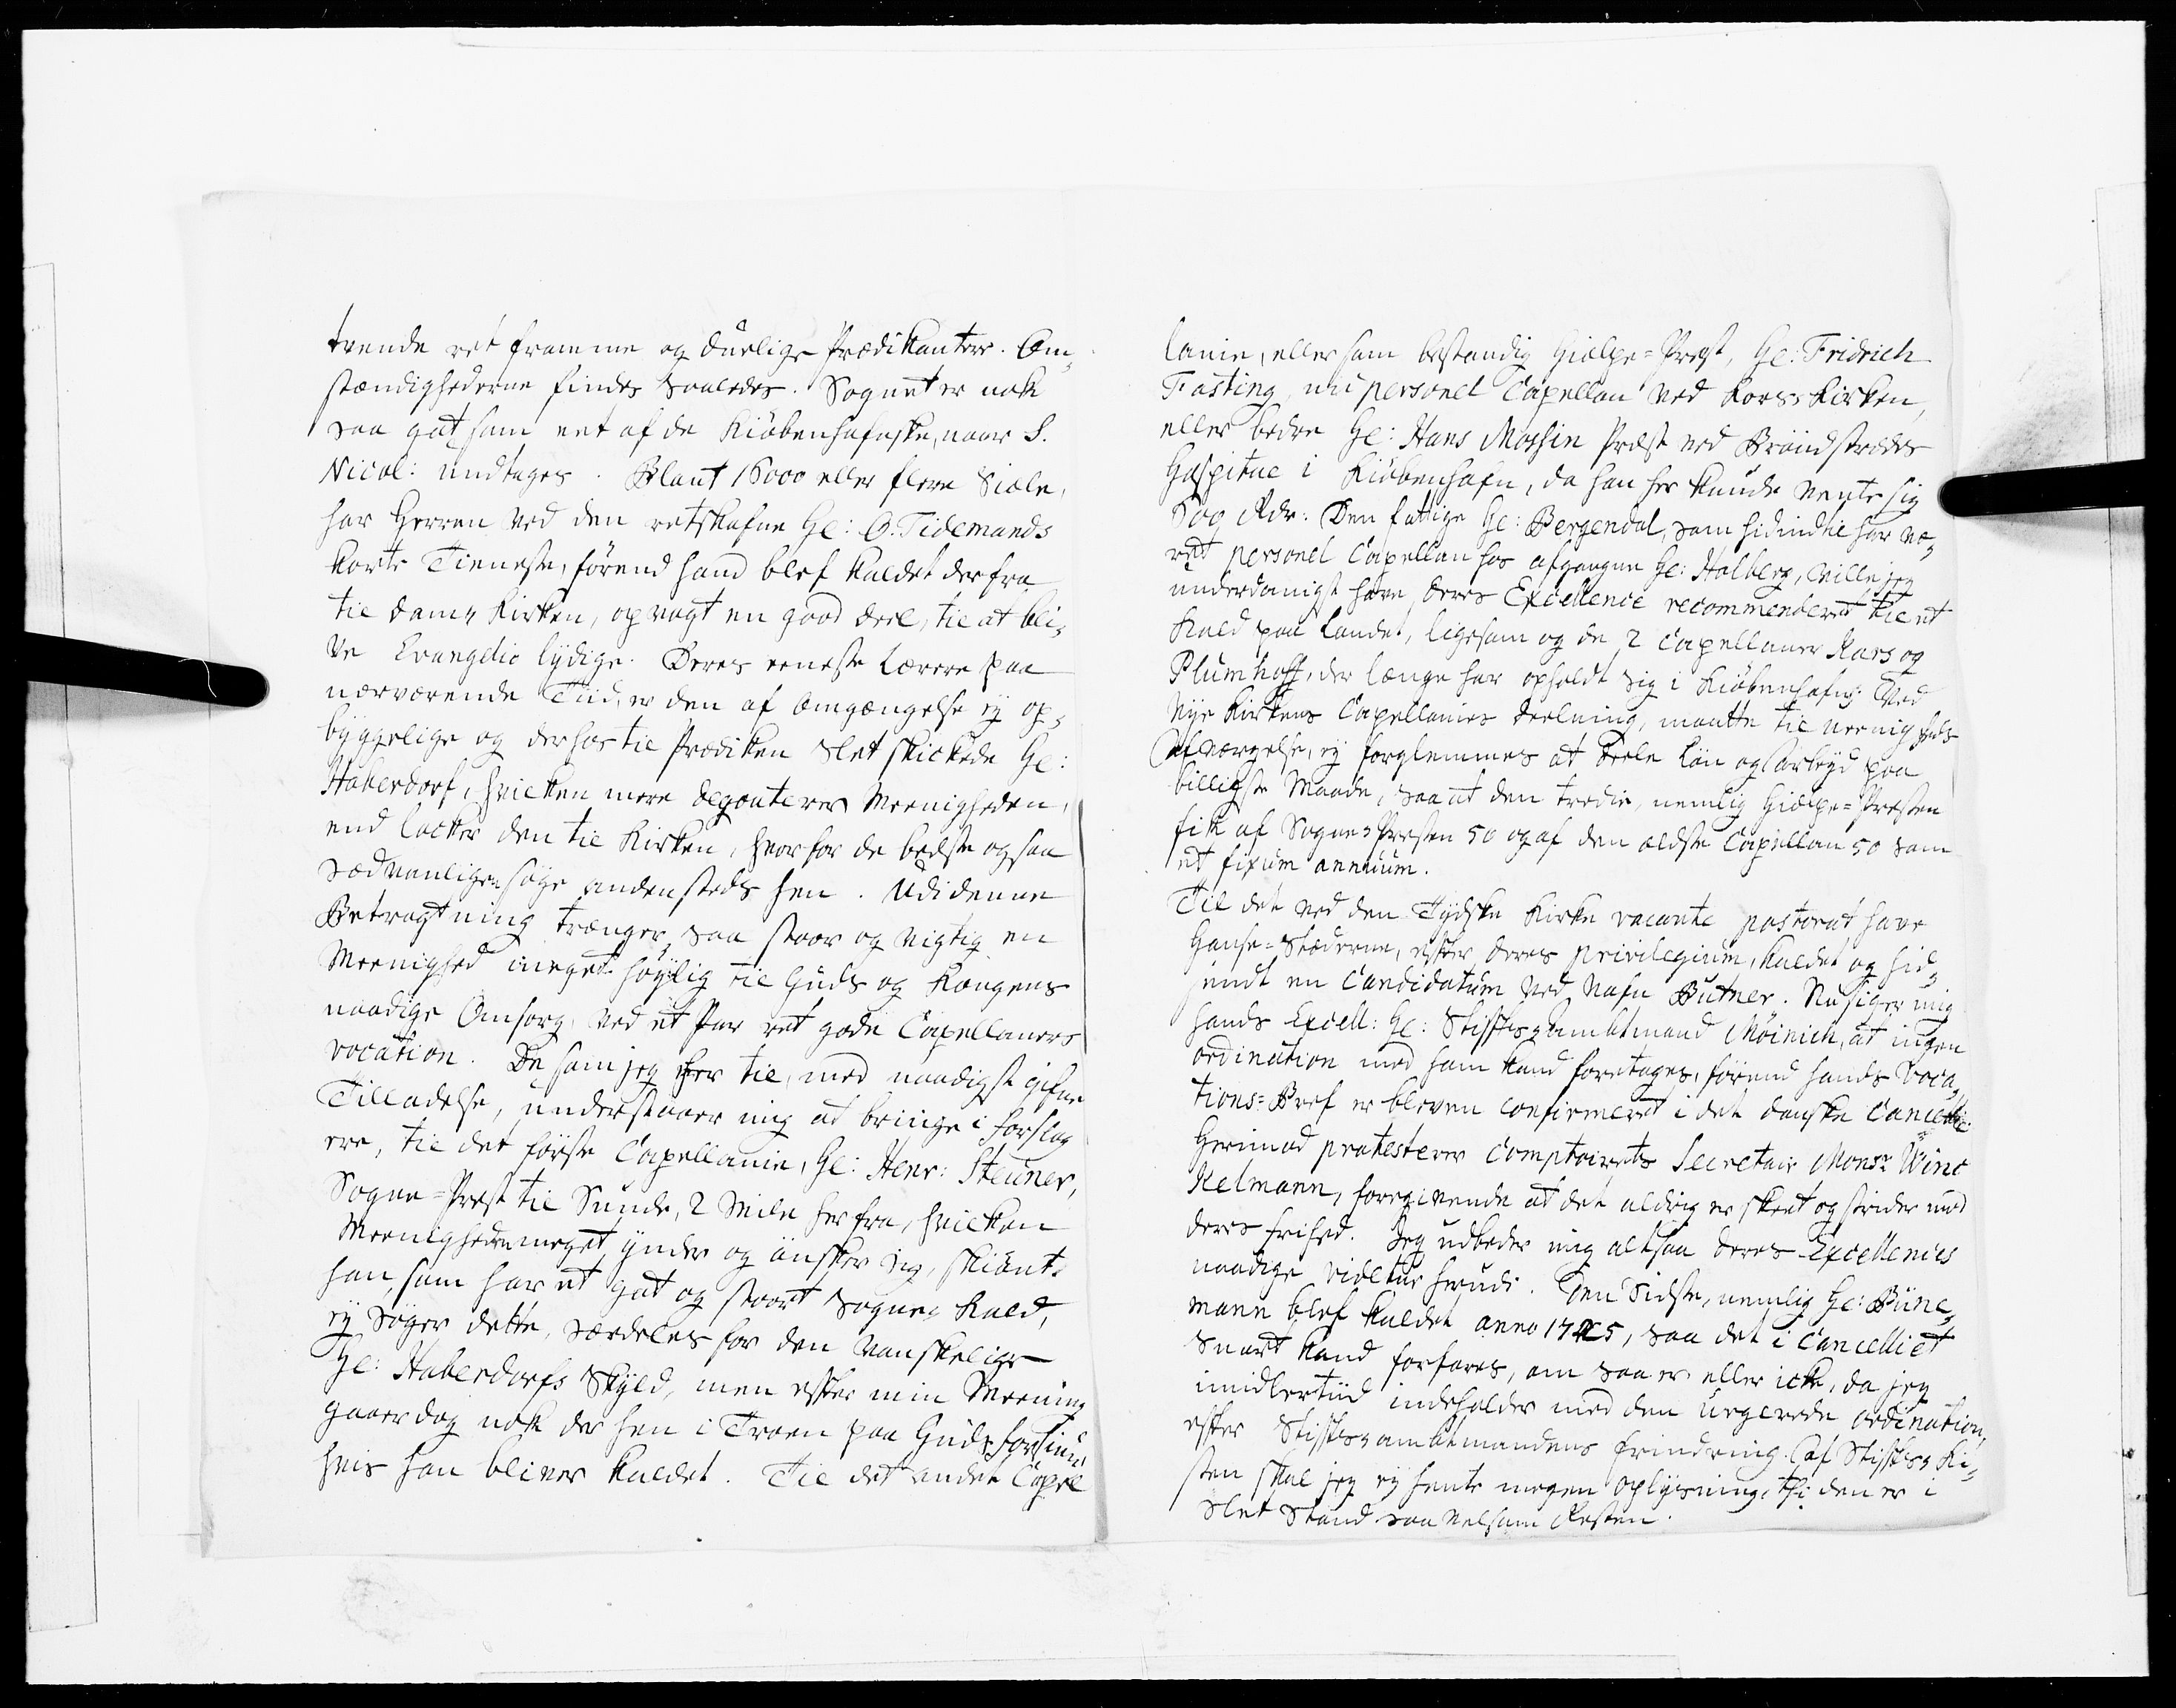 tvende ret fromme og duelige Prædikantere. Om¬
stændighederne findes saaledes. Sognet er nok
saa got som eet af de Kiøbenhafnske, naar S.
Nicol: undtages. Blant 16000 eller flere Siæle,
har Herren ved den retskafne Hr: O. Tidemands
korte Tieneste, førend hand blef kaldet derfra
til Dom-Kirken, opvagt en good deel, til at bli¬
ve Evangelio lydige. Deres eeneste Lærere paa
nærværende Tiid, er den af Omgængelse ey op¬
byggelige og derhos til Prædiken slet skickede Hr:
Haberdorf, hvilken mere degouterer Meenigheden,
end locker den til Kirken, hvorfor de bedste ogsaa
sædvanligen søge andensteds hen. Udi denne
Betragtning trænger saa stoor og vigtig en
Meenighed meget høylig til Guds og Kongens
naadige Omsorg, ved et Par ret gode Capellaners
vocation. De som jeg her til, med naadigst gifne
Tilladelse, understaaer mig at bringe i Forslag
ere, til det første Capellanie, Hr: Henr: Steuner,
Sogne-Præst til Sunde, 2 Mile herfra, hvilken
Meenigheden meget ynder og ønsker sig, skiønt
han, som har et got og stoort Sogne-Kald,
ey søger dette, særdeles for den vanskelige
Hr: Haberdorfs Skyld, men efter min Meening
gaaer dog nok der hen i Troen paa Guds Forsiun,
hvis han bliver kaldet. Til det andet Capel
lanie, eller som bestandig Hiælpe-Præst, Hr: Fridrich
Fasting, nu personel Capellan ved Kors-Kirken,
eller bedre Hr: Hans Mossin Præst ved Brøndstrædes
Hospital i Kiøbenhafn, da han her kunde vente sig
500 Rdr. Den fattige Hr: Bergendal, som hidindtil har væ¬
ret personel Capellan hos afgangne Hr: Holberg, ville jeg
underdanigst have Deres Excellence recommenderet til et
Kald paa Landet, ligesom og de 2 Capellaner Kars og
Plumhoff, der længe har opholdt sig i Kiøbenhafn. Ved
Nye Kirkens Capellanies Deelning, maatte til ueenigheds
afværgelse, ey forglemmes at deele Løn og Arbeyd paa
billigste Maade, saa at den tredie, nemlig Hiælpe-Præsten
fik af Sogne-Præsten 50 og af den ældste Capellan 50 som
et fixum annuum.
Til det ved den Tydske Kirke vacante pastorat have
Hanse-Stæderne, efter deres privilegium, kaldet og hid¬
sendt en Candidatum ved Nafn Butner. Nu siger mig
hands Excell: Hr: Stiftes-Ambtmand Møinich, at ingen
ordination med ham kand foretages, førend hands Voca¬
tions-Bref er bleven confirmeret i det danske Cancellie.
Herimod protesterer Comptoirets Secretair Monsr Winc
Kelmann, foregivende at det aldrig er skeet og strider mod
deres frihed. Jeg udbeder mig altsaa Deres Excellences
naadige videtur herudi. Den Sidste, nemlig Hr: Büne¬
mann blef kaldet anno 1725, saa det i Cancelliet
snart kand forfares, om saa er eller icke, da jeg
imidlertiid indeholder med den urgerede Ordination,
efter Stiftes-ambtmandens Erindring. Af Stiftes-Ki¬
sten skal jeg ey hente megen oplysning, thi den er i
slet Stand saavelsom Resten.